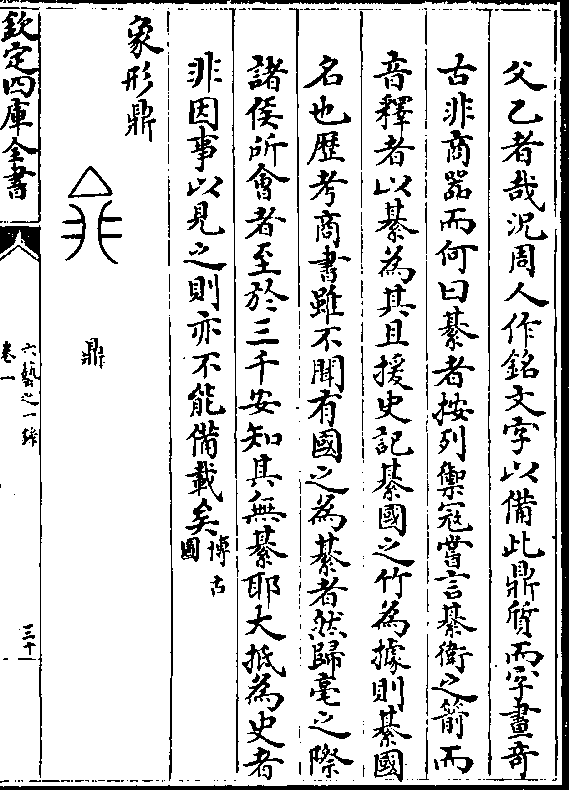 父乙者哉况周人作銘文字以備此鼎質而字畫竒
古非商器而何曰綦者按列禦冦嘗言綦衛之箭而
音釋者以綦為其且援史記綦國之竹為據則綦國
名也歴考商書雖不聞有國之為綦者然歸亳之際
諸侯所會者至於三千安知其無綦耶大抵為史者
非因事以見之則亦不能備載矣博古圖
象形鼎
鼎
欽定四庫全書
六藝之一録
卷一
三十